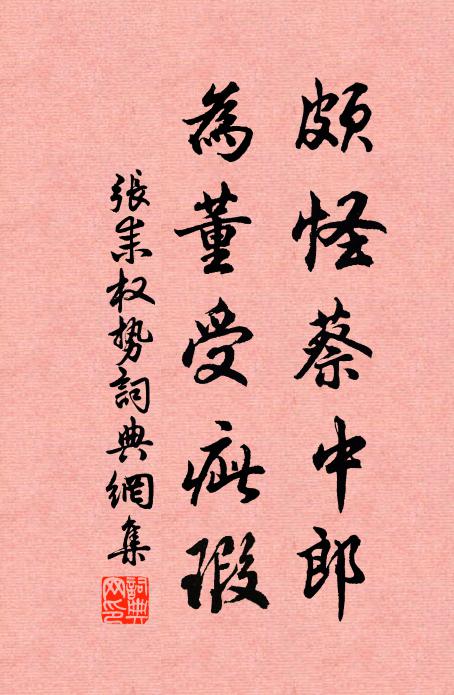 頗怪蔡中郎
為董受疵瑕
張耒权势詞典網集
詞典网印